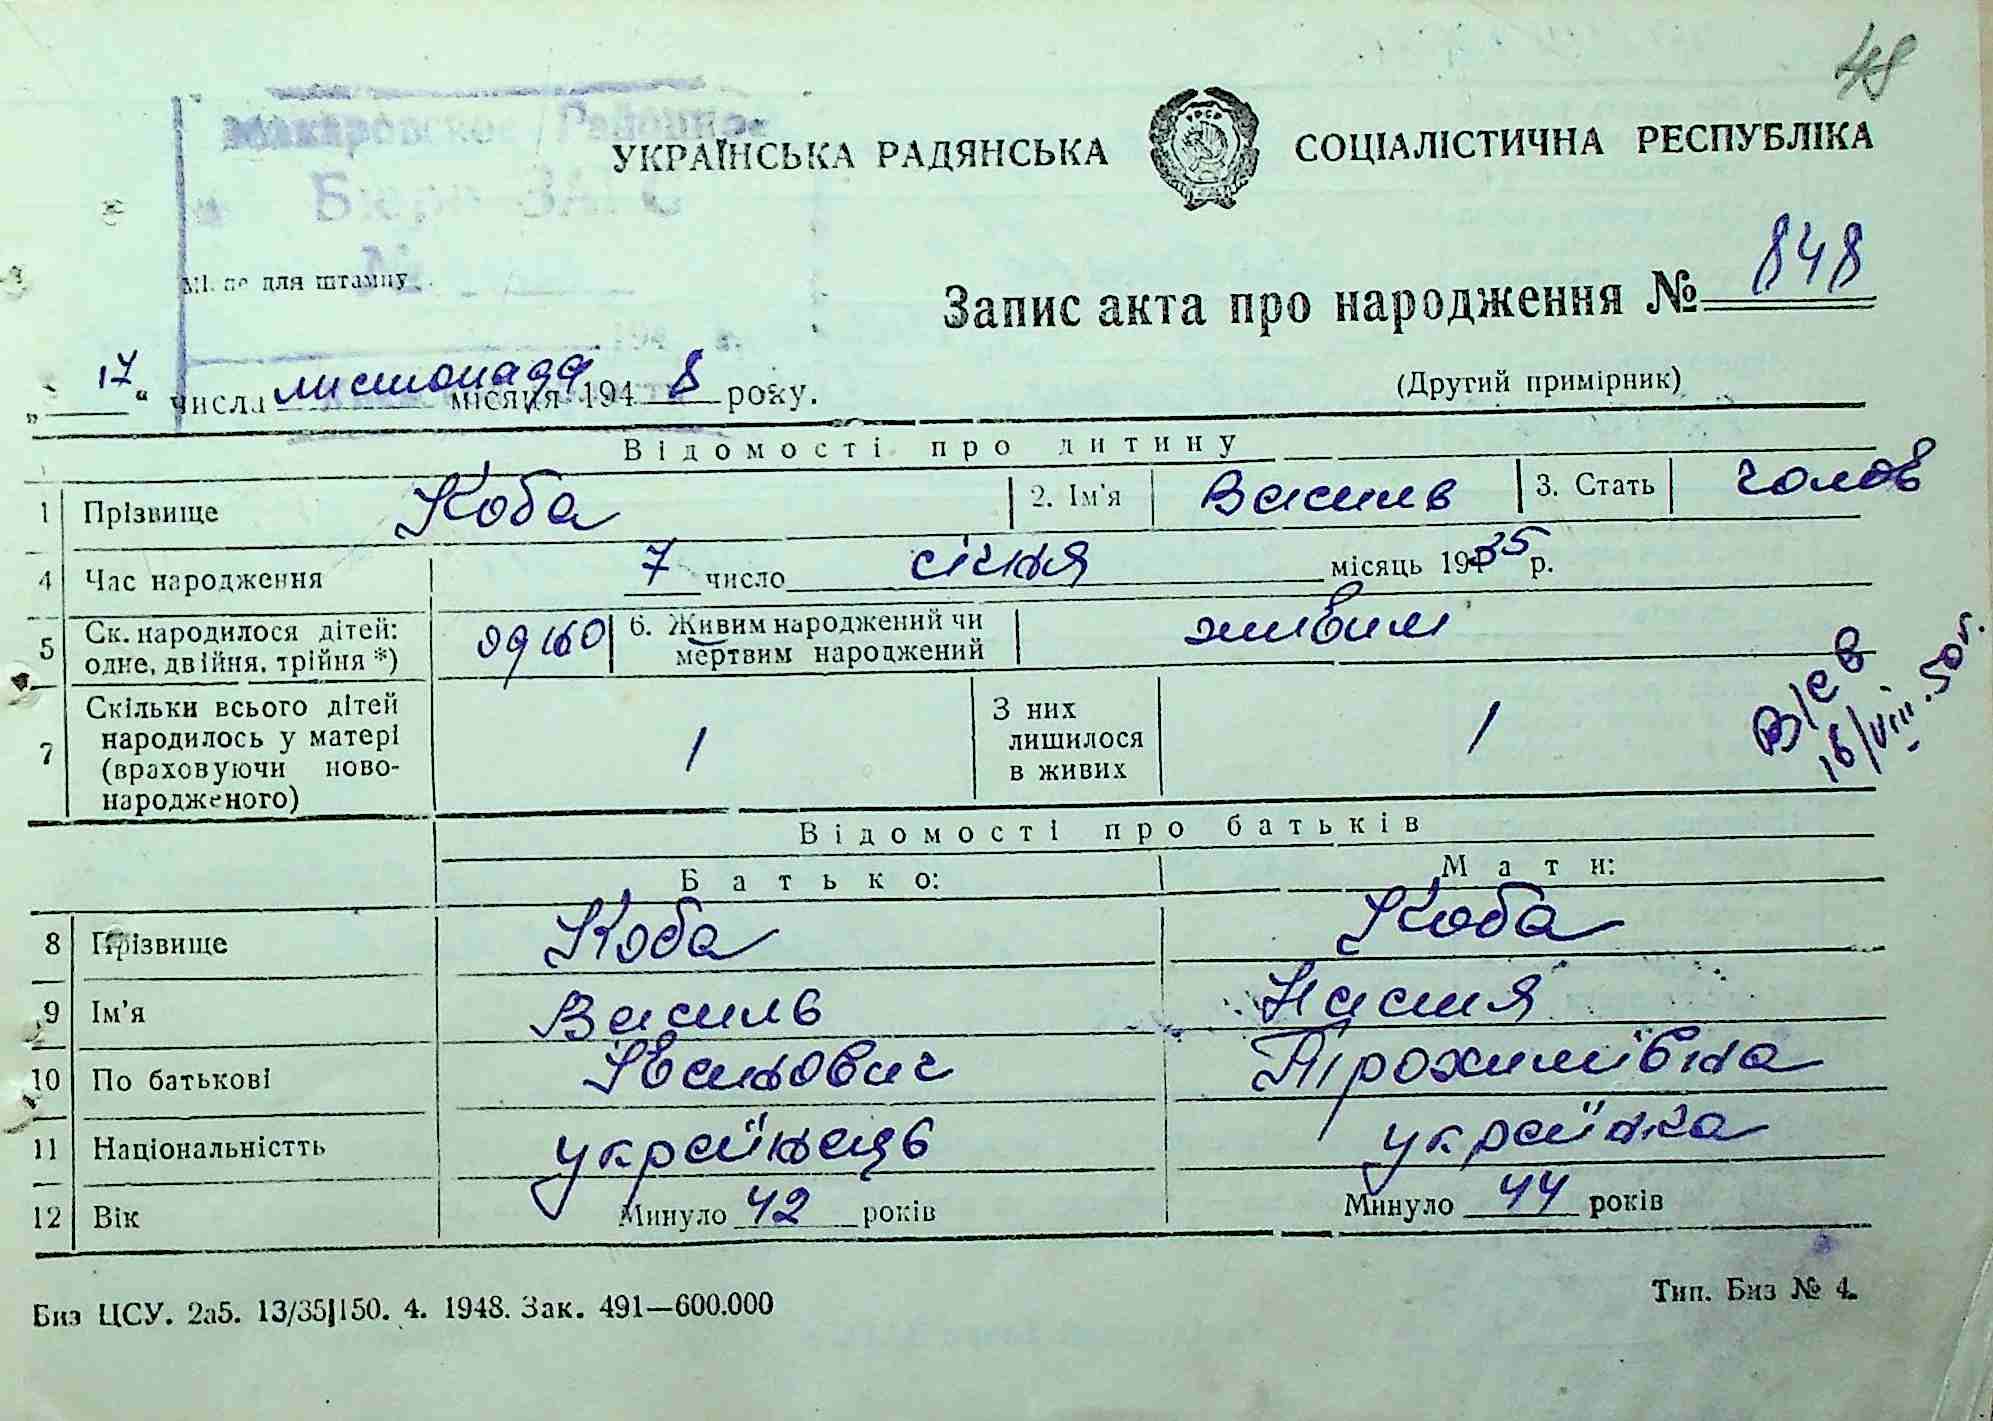 48
Макаровское Районное
УКРАЇНСЬКА РАДЯНСЬКА СОЦІАЛІСТИЧНА РЕСПУБЛІКА
Бюро ЗАГС
для штампу
Запис акта про народження № 848
„ 17 “ числа листопада місяця 194 8 року.
(Другий примірник)
Відомості про дитину
1 Прізвище Коба 2. Ім'я Василь 3. Стать чолов
4 Час народження 7 число січня місяць 1935 р.
5 Ск. народилося дітей: одне, двійня, трійня *) одно 6. Живим народжений чи мертвим народжений живим
7 Скільки всього дітей народилось у матері (враховуючи ново-народженого) 1 З них лишилося в живих 1
16/VIII.50 г.
Відомості про батьків
Батько: Мати:
8 Прізвище Коба Коба
9 Ім'я Василь Настя
10 По батькові Трохимівна
11 Національністть українець українка
12 Вік Минуло 42 років Минуло 44 років
Биз ЦСУ. 2а5. 13/35|150. 4. 1948. Зак. 491—600.000
Тип. Биз № 4.